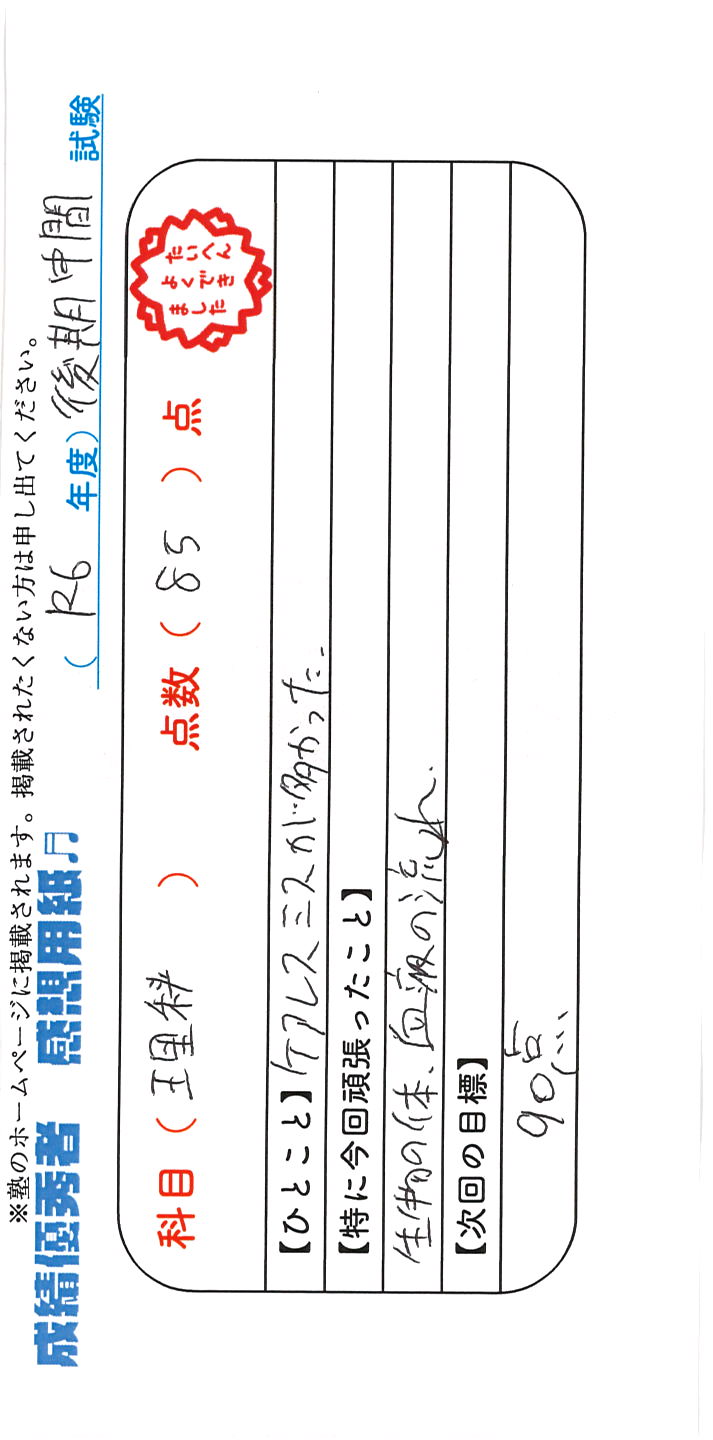 ※塾のホームページに掲載されます。掲載されたくない方は申し出てください。
成績優秀者 感想用紙♬ ( R6 年度) 後期中間 試験
科目 ( 理科 ) 点数 ( 85 ) 点
たいへん
よくでき
ました
【ひとこと】ケアレスミスが多かった..
【特に今回頑張ったこと】
生物の体、血液の流れ.
【次回の目標】
90点